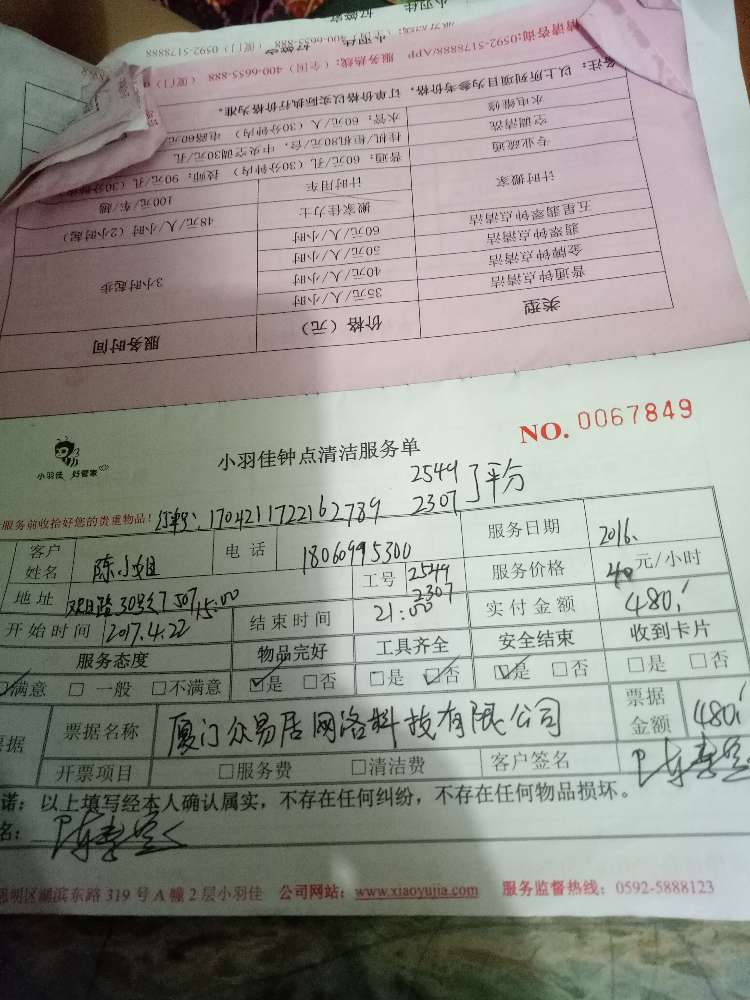 小羽佳
好管家
小羽佳 好管家
服务热线：（全国）400-6655-888 （厦门）0592-5178888
情请咨询:0592-5178888/APP 服务热线：（全国）400-6655-888 （厦门）
备注：以上所列项目为参考价格，订单价格以实际执行价格为准。
水电维修 水管：60元/人（30分钟内） 电路60元
空调清洗 挂机/柜机80元/台，中央空调30元/孔
专业疏通 普通：60元/孔（30分钟内） 技师：90元/孔（30分钟
计时搬家 计时用车 100元/车/趟
搬家佳力士 48元/人/小时（2小时起）
五星翡翠钟点清洁 60元/人/小时
翡翠钟点清洁 50元/人/小时
金牌钟点清洁 40元/人/小时 3小时起步
普通钟点清洁 35元/人/小时
类型 价格（元） 服务时间
小羽佳 好管家
小羽佳钟点清洁服务单
NO. 0067849
服务前收拾好您的贵重物品！订单号：1704211722162789 2549 2307 平分
客户姓名 陈小姐 电话 18060995300 服务日期 2016.
地址 30号 507 工号 2549 2307 服务价格 40元/小时
开始时间 2017.4.22 15:00 结束时间 21:00 实付金额 480.
服务态度 物品完好 工具齐全 安全结束 收到卡片
☑满意 □ 一般 □不满意 ☑是 □否 □是 ☑否 ☑是 □否 □是 □否
据 票据名称 厦门众易居网洛科技有限公司 票据金额 480.
开票项目 □服务费 □清洁费 客户签名
诺：以上填写经本人确认属实，不存在任何纠纷，不存在任何物品损坏。
名：
思明区湖滨东路 319 号 A 幢 2 层小羽佳 公司网站：www.xiaoyujia.com 服务监督热线：0592-5888123